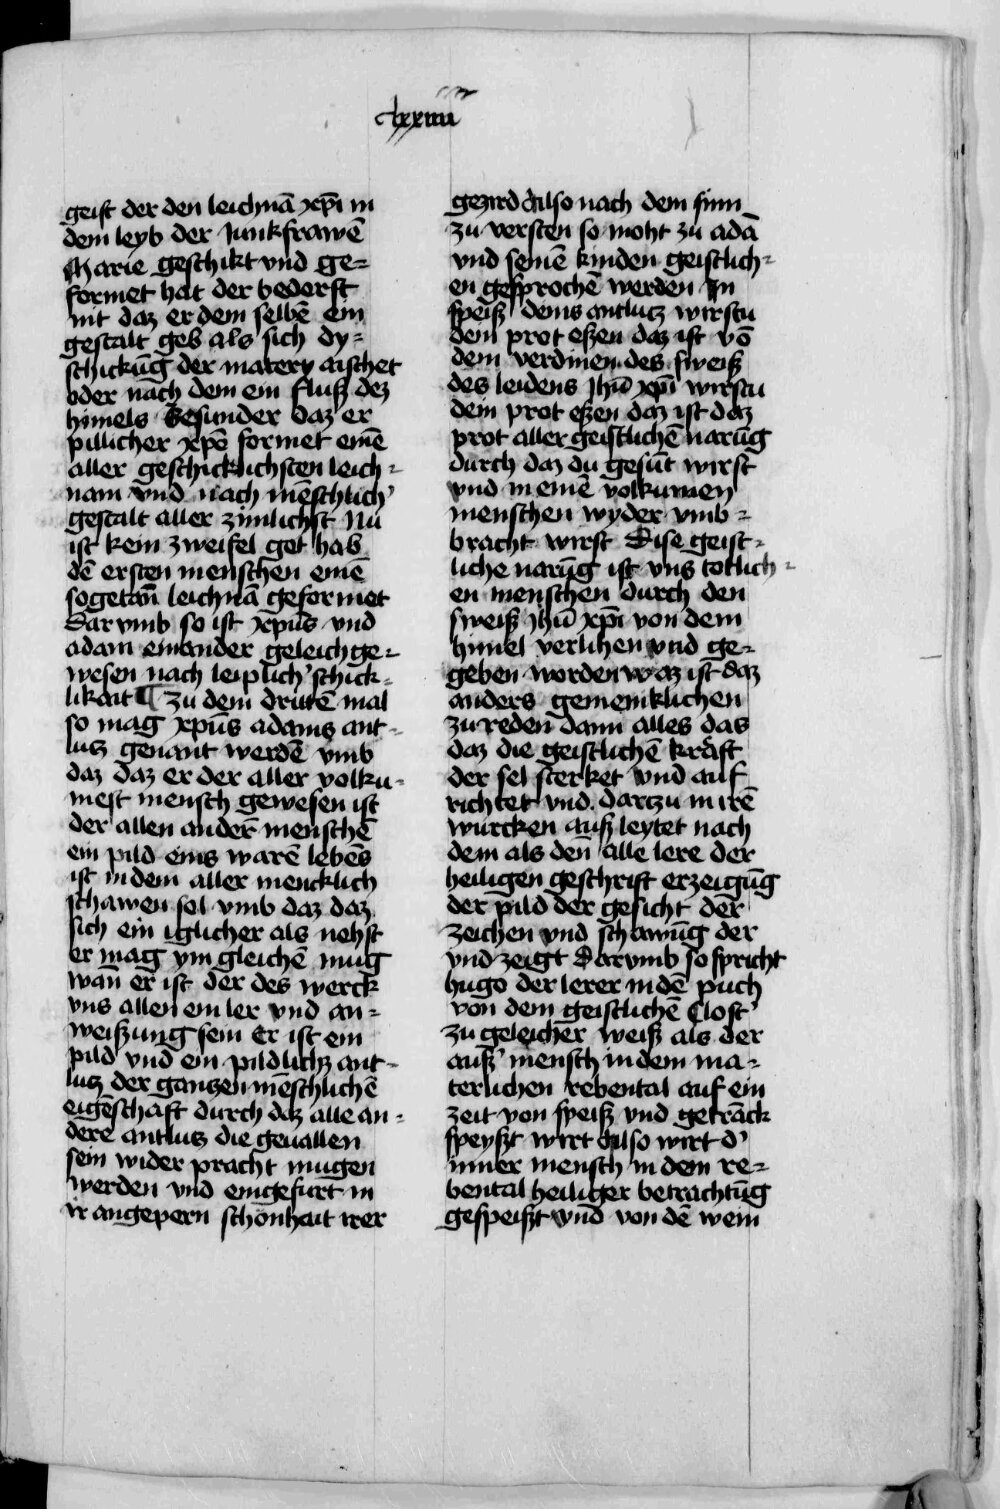 lxxiiii
geist der den leichnā xp̄i in
dem leyb der Junkfrawē
Marie geschikt vnd ge=
formet hat der bederft
nit daz er dem selbē ein
gestalt geb als sich dy=
schickūg der matery aischet
oder nach dem ein fluß dez
himels Besunder daz er
pillicher xp̄o formet einē
aller geschicklichsten leich=
nam vnd nach mēschlich'
gestalt aller zimlichst Nu
ist kein zweifel get hab
dē ersten menschen einē
sogetan̄ leichnā geformet
Darvmb so ist xp̄us vnd
adam einander geleich ge=
wesen nach leiplich' schick=
likait ¶ Zu dem dritten̄ mal
so mag xp̄us adams ant=
lutz genant werdē vmb
daz daz er der aller volku=
mest mensch gewesen ist
der allen andern̄ menschē
ein pild eins warē lebēs
ist in dem aller mencklich
schawen sol vmb daz daz
sich ein iglicher als nehst
er mag ym gleichē mug
wan̄ er ist der des werck
vns allen ein ler vnd an=
weißung sein Er ist ein
pild vnd ein pildlichz ant=
lutz der gantzen mēschlichē
eigēschaft durch daz alle an=
dere antlutz die geuallen
sein wider pracht mugen
werden vnd eingefurt in
ir angepern schonheit irer
gezird Also nach dem sinn
zu versten so moht zu adā
vnd seinē kinden geistlich=
en gesprochē werden In
speiß deins antlutz wirstu
dein prot eßen daz ist vō
dem verdinen des sweiß
des leidens Jhū xp̄i wirstu
dein prot eßen daz ist daz
prot aller geistlichē narūg
durch daz du gesūt wirst
vnd in einē volkumen
menschen wyder vmb=
bracht wirst Dise geist=
liche narūg ist vns totlich=
en menschen durch den
sweiß Jhū xp̄i von dem
himel verlihen vnd ge=
geben worden waz ist daz
anders gemeinklichen
zu reden dann alles das
daz die geistlichē kraft
der sel sterket vnd auf
richtet vnd darczu in irē
wurcken auß leytet nach
dem als den̄ alle lere der
heiligen geschrift erzeigūg
der pild der gesicht der
zeichen vnd schawūg der
vnd zeigt Darvmb so spricht
hugo der lerer in dē puch
von dem geistlichē Clost'
zu geleicher weiß als der
auß' mensch in dem ma=
terlichen rebental auf ein
zeit von speiß vnd getrāck
speyßt wirt Also wirt d'
inner mensch in dem re=
bental heiliger betrachtūg
gespeißt vnd von dē wein